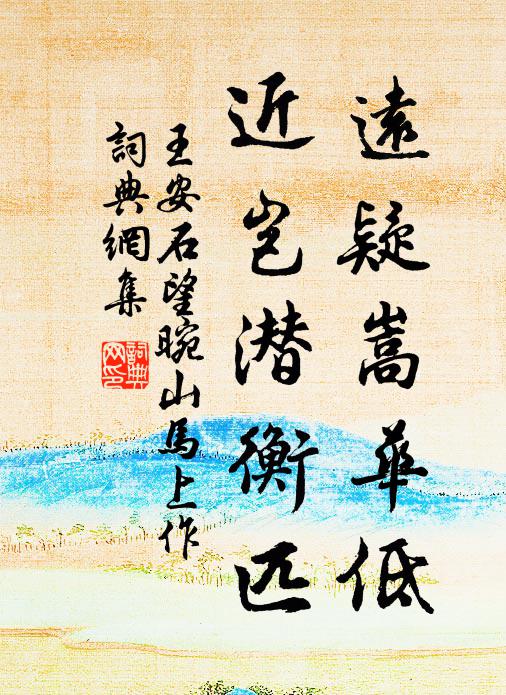 遠疑嵩華低
近岂潜衡匹
王安石望晥山馬上作
詞典網集
詞典
网印